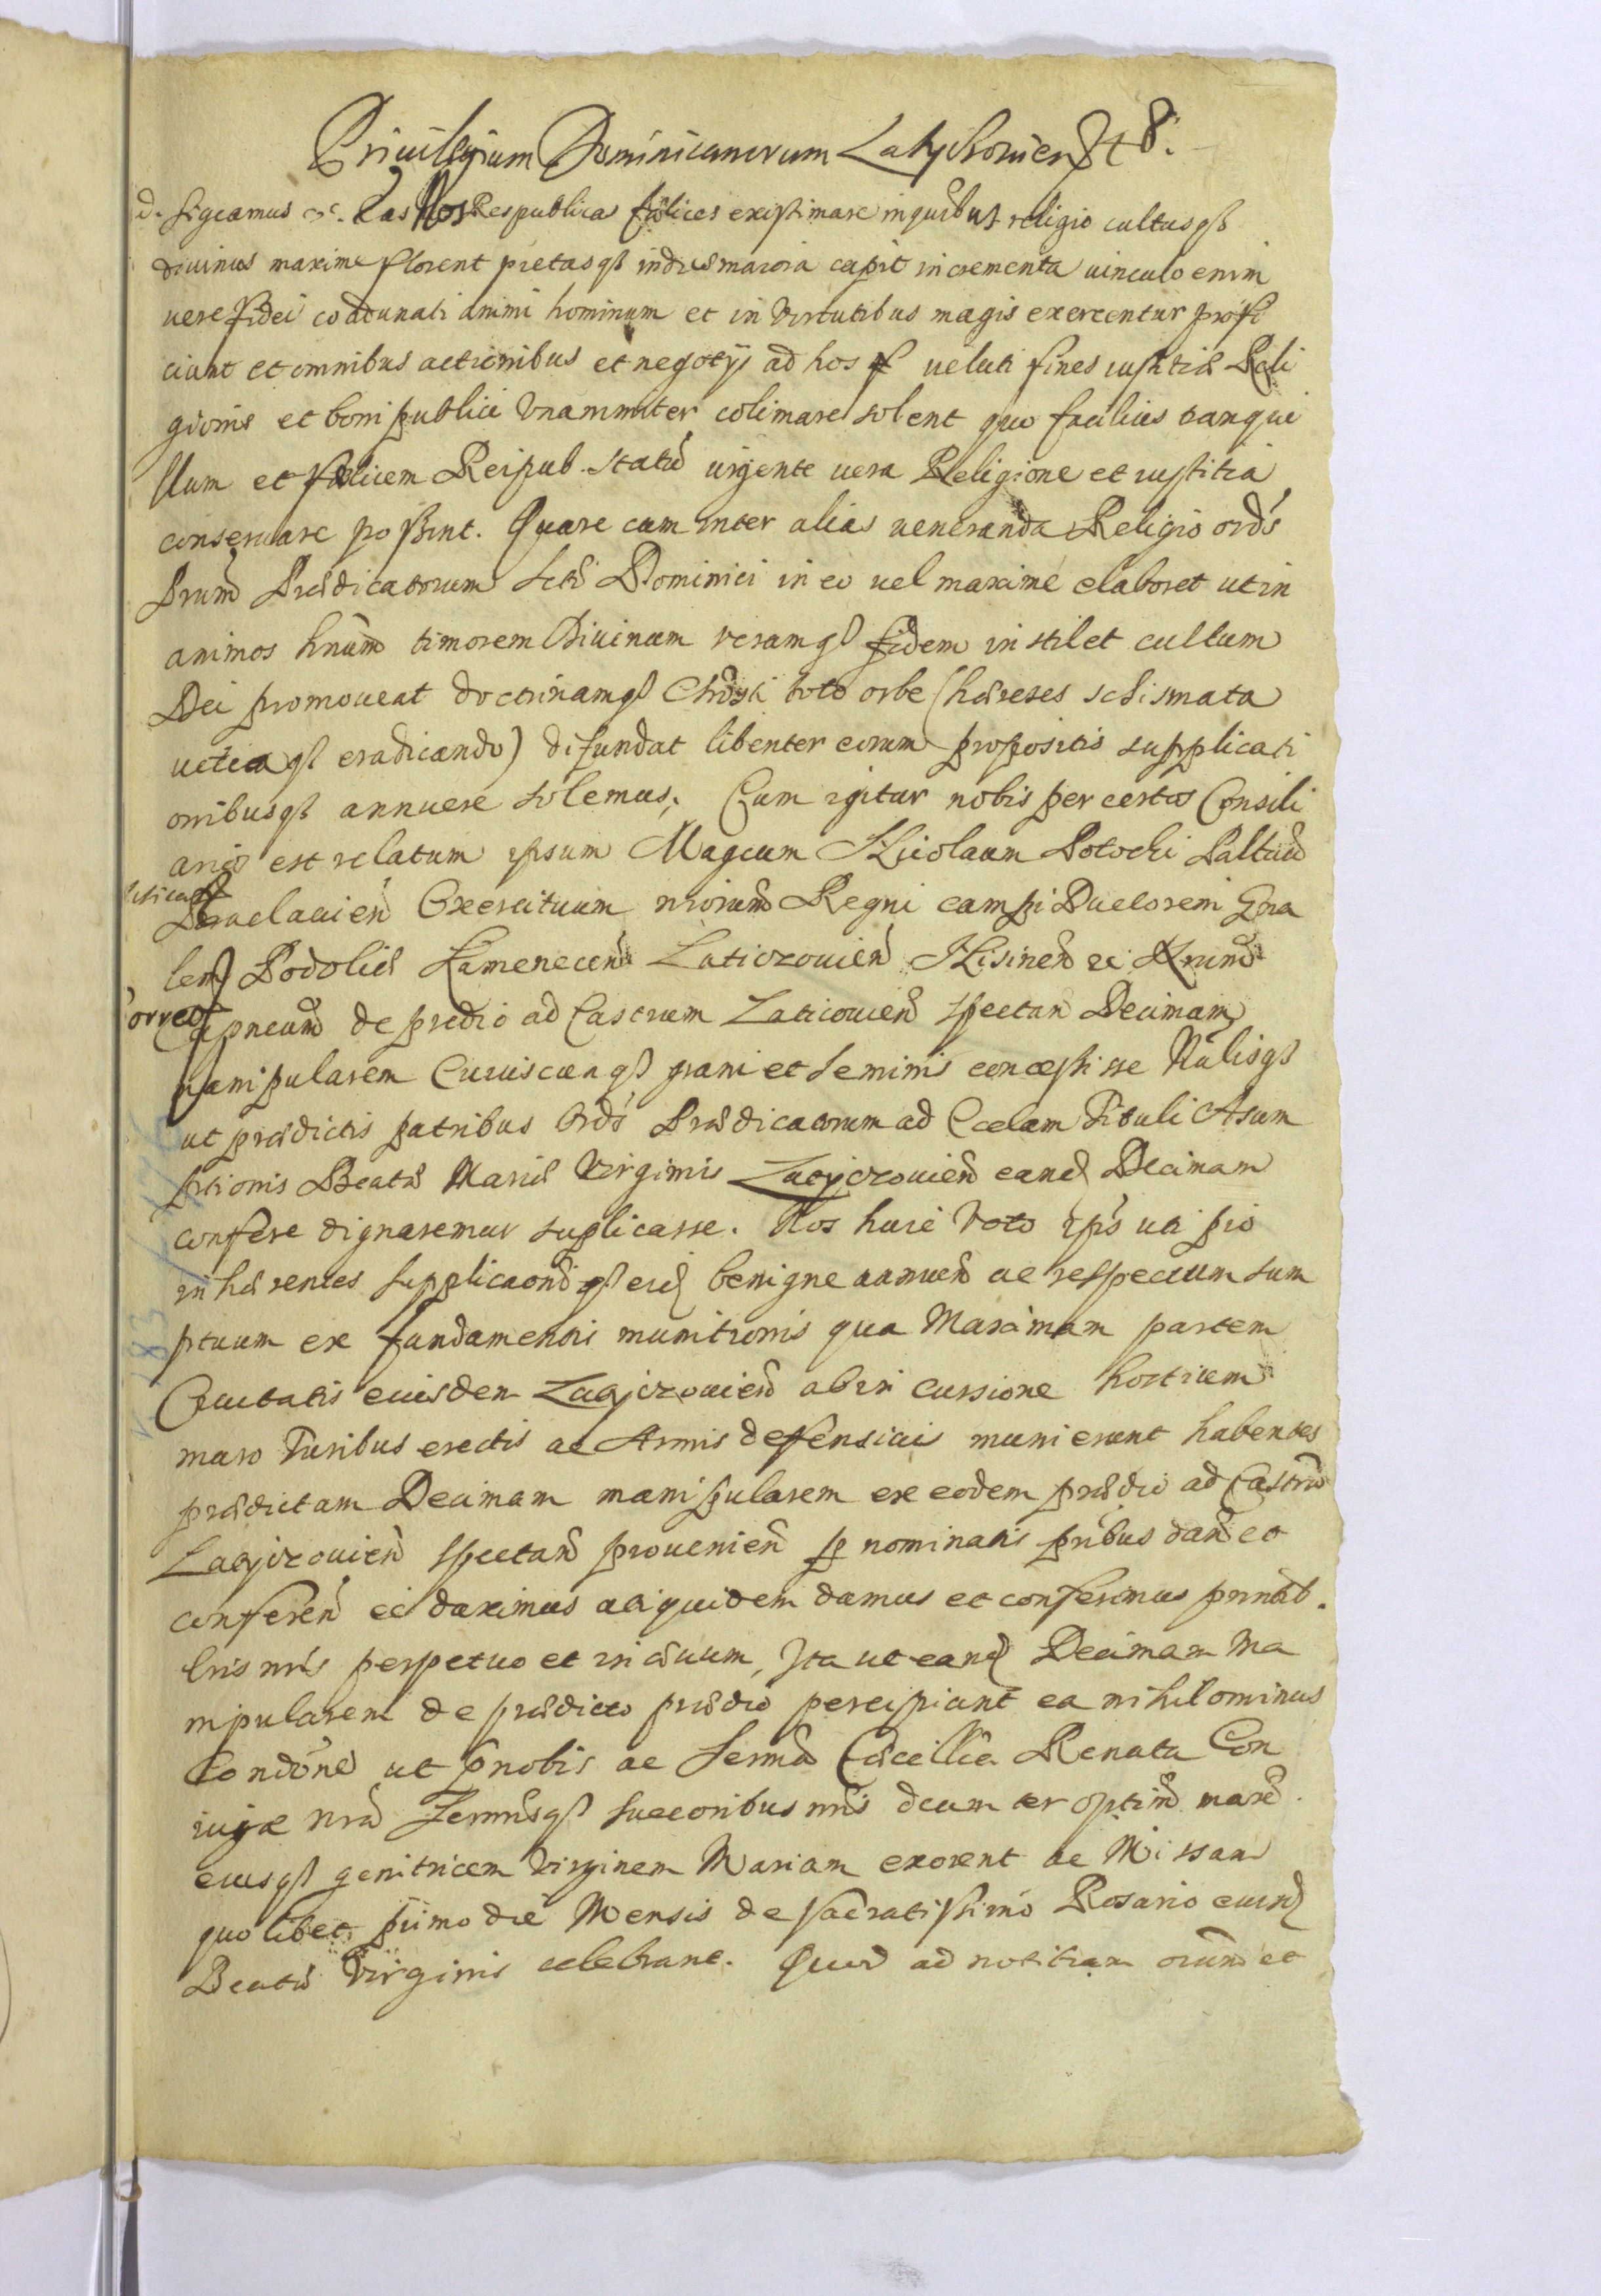 Priuilegium Dominicanorum Latyczouien 8.
d. sigeamus &c. Eas Nos Respublicas fœlices existimare in quibus religio cultusqß
diuinus maxime florent pietasqß indies maiora capit incrementa uinculo enim
uere fidei coadunati animi hominum et in Virtutibus magis exercentur profi
ciunt et omnibus actionibus et negotijs ad hos ueluti fines iustitiæ Reli
gionis et boni publici Vnanimiter colimare solent quo facilius tanqui
llum et fœlicem Reipub. statū uigente uera Religione et iustitia
conseruare poßint. Quare cum inter alias ueneranda Religio ordīs
Prum Prædicatorum Scti Dominici in eo uel maxime elaboret ut in
animos hnūm timorem Diuinum veramqß fidem instilet cultum
Dei promoueat doctrinamqß Chrysti toto orbe (hæreses schismata
uetiaqß eradicando) difundat libenter eorum propositis supplicati
onibusqß annuere solemus. Cum igitur nobis per certos Consili
arios est relatum ipsum Magcum Nicolaum Potocki Paltnū
Braclauień Exercituum nrorum Regni campi Ductorem Gna
lem Podoliæ Kamenecen Laticzouień Nisineń
Capneum de predio ad Castrum Laticouień spectan Decimam
manipularem Cuiuscunqß grani et seminis concessisse Nūlisqß
ut prædictis patribus Ordīs Prædicatorum ad Eccelam Tituli Asum
ptionis Beatæ Mariæ Virginis Latyczouień eand Decimam
confere dignaremur suplicasse. Nos huic Voto ipīs uti pio
inhærentes supplicaonqß eid benigne annueń ac respectum sum
ptuum ex fundamentis munitionis qua Maximam partem
Ciuitatis eiusdem Latyczouień ab in cursione hosticum
muro Turibus erectis ac Armis defensiuis munierunt habentes
prædictam Decimam manipularem ex eodem prædio ad Castrū
Latyczouień spectań prouenień p nominatis pribus dań et
confereń ee duximus ati quidem damus et conferimus prntib.
lris nris perpetuo et in æuum, Ita ut eand Decimam Ma
nipularem de prædicto prædio percipiant ea nihilominus
Condōne ut p nobis ac Sernīa Cæcillia Renata Con
iuge nrā Sernīsqß succoribus nris deum ter optim maxō.
eiusqß genitricem Virginem Mariam exorent ac Missam
quolibet primo die Mensis de sacratißimo Rosario eiusd
Beatæ Virginis celebrant. Quod ad notitiam oium et